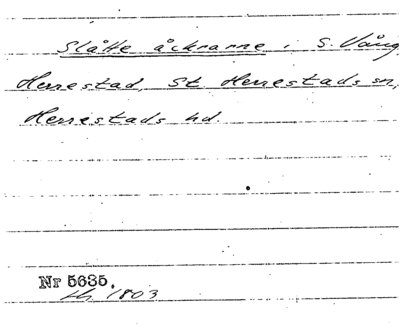 Slåtte åckrarne i S. Vång,
Herrestad, St. Herrestads sn,
Herrestads hd.
Nr 5635.
lh. 1803